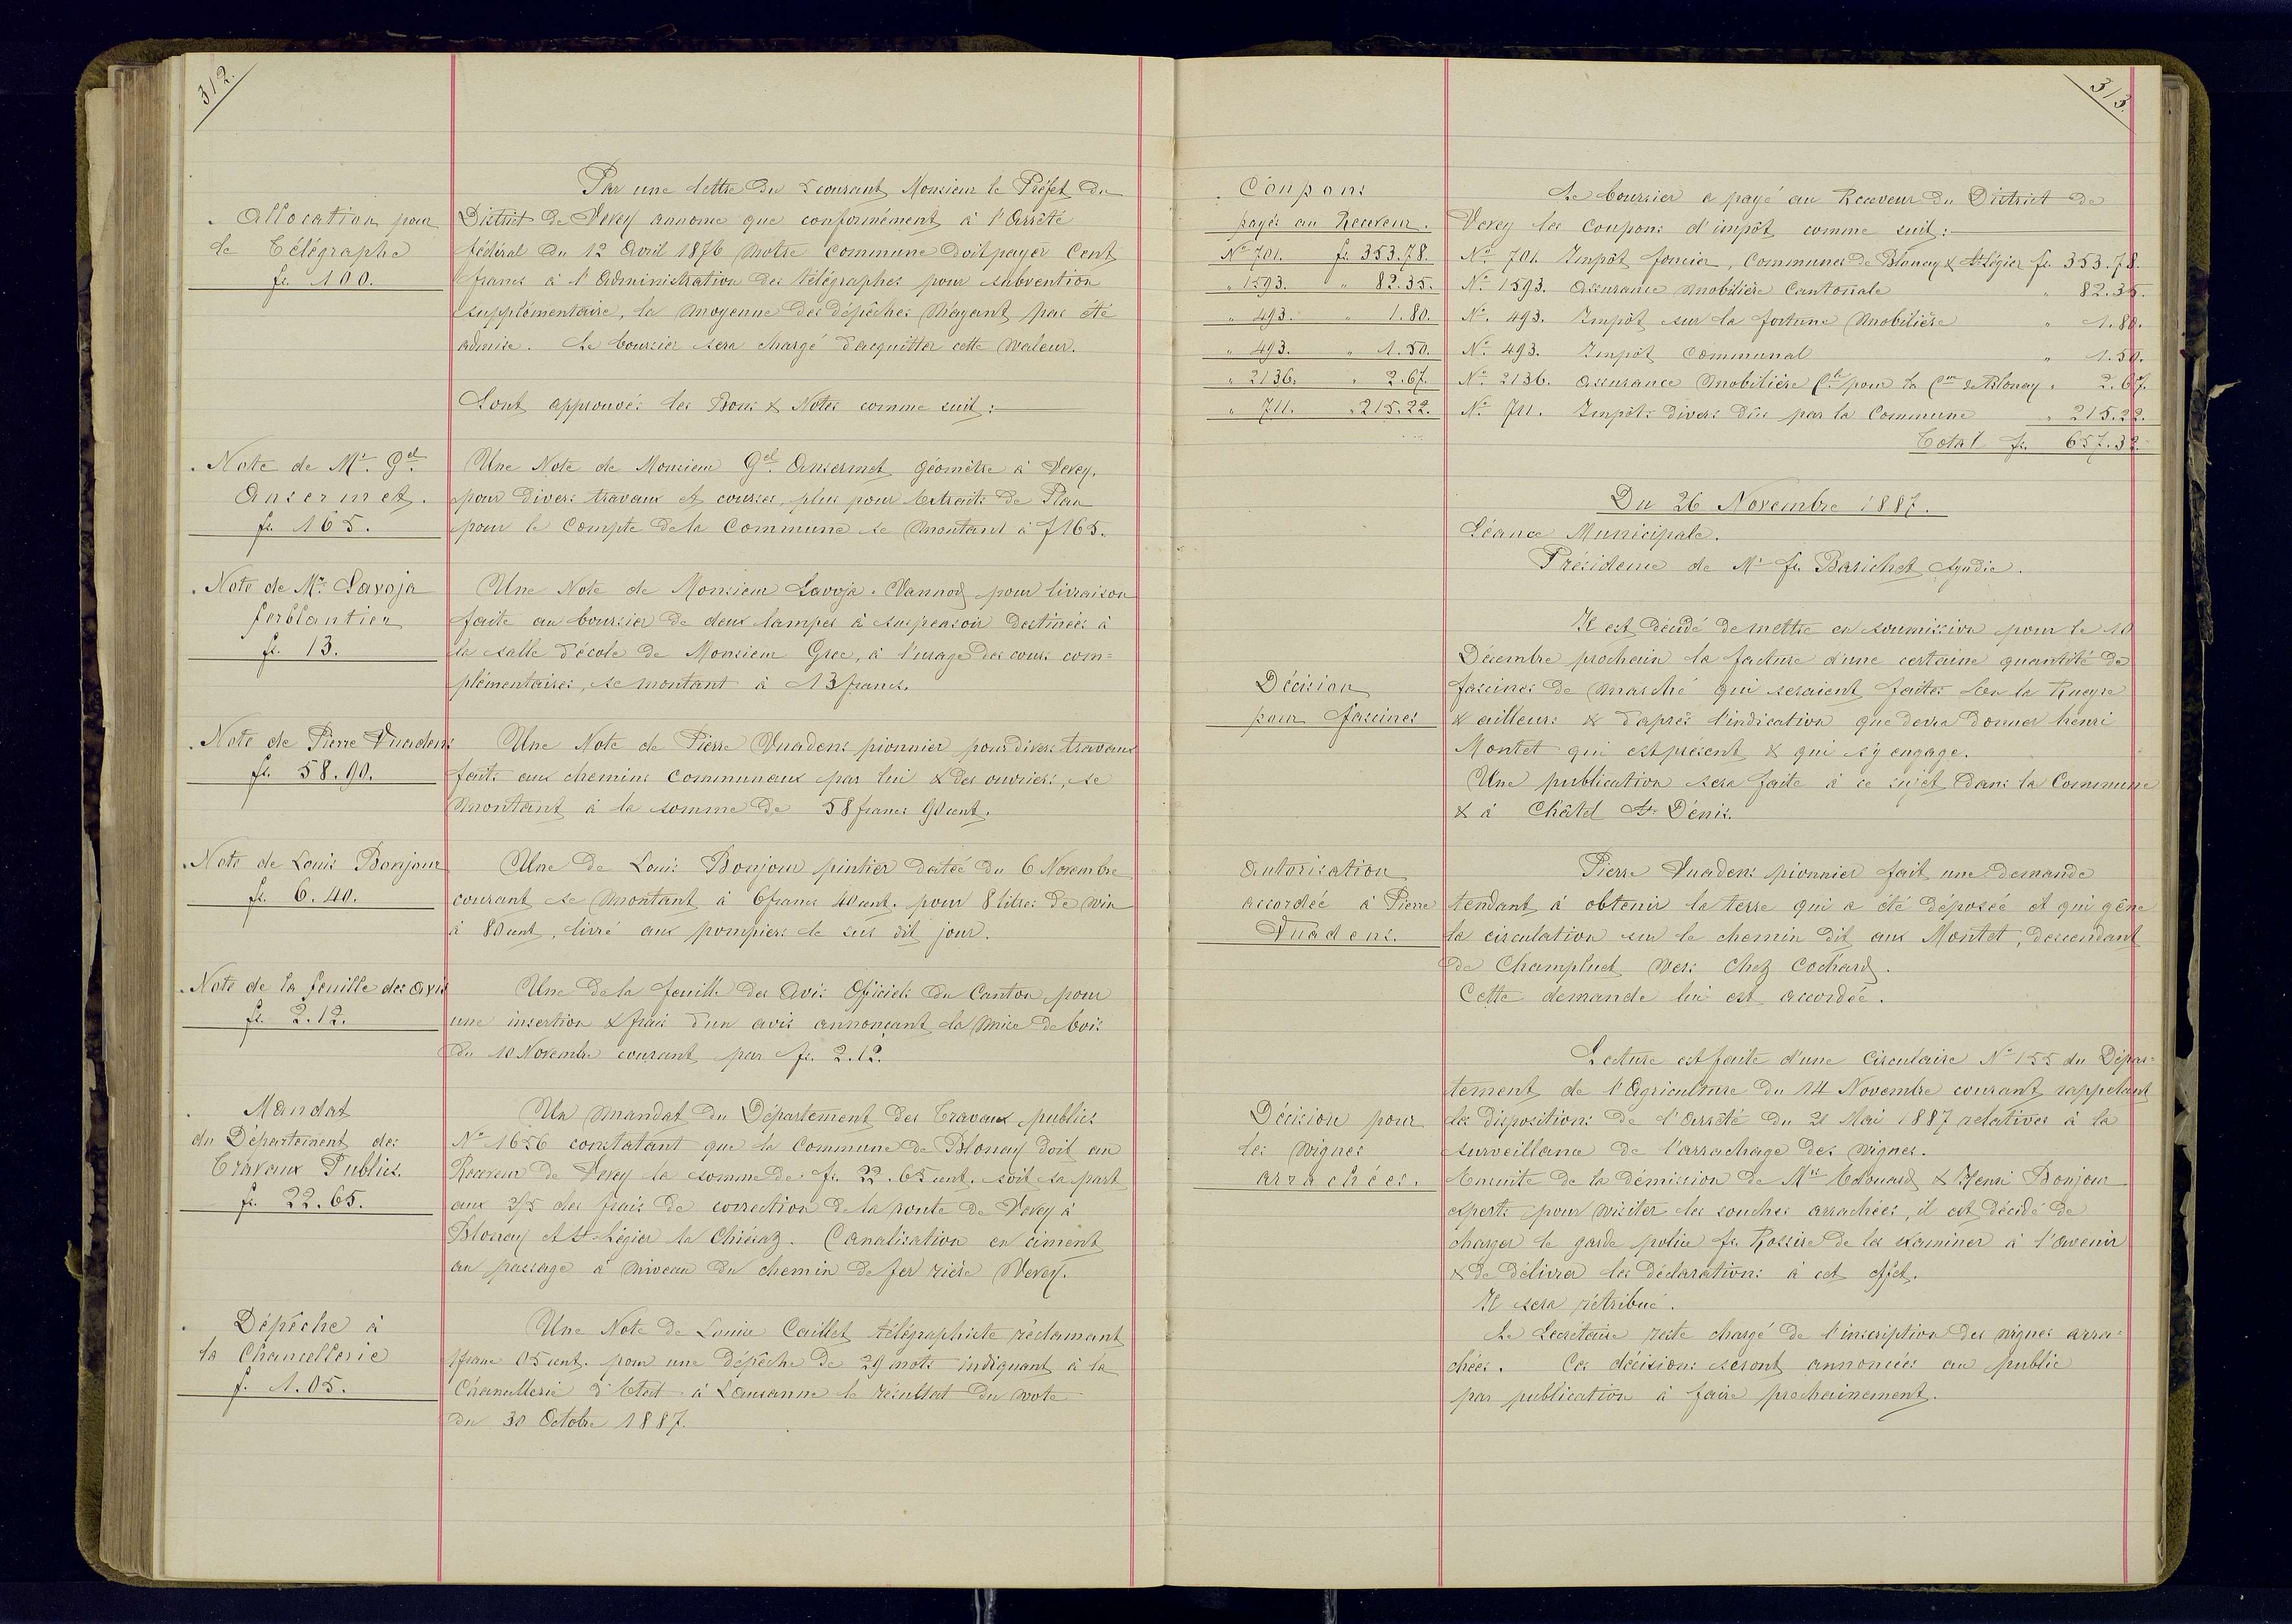 312.
Par une lettre du 2 courant, Monsieur le Préfet du
District de Vevey annonce que conformément à l'Arrêté
fédéral du 12 Avril 1876 notre commune doit payer Cent
francs à l'Administration des télégraphes pour subvention
supplémentaire, la moyenne des dépêches n'ayant pas été
admise. Le boursier sera chargé d'acquitter cette valeur.
Allocation pour
le Télégraphe
fr. 100.
Sont approuvés les Bons & Notes comme suit :
Note de Mr. Gel
Ansermet.
fr. 165.
Une Note de Monsieur Gel. Ansermet géomètre à Vevey,
pour divers travaux et courses, plus pour Extraits de Plan
pour le Compte de la Commune se montant à f 165.
Note de Mr. Savoja
ferblantier
fr. 13.
Une Note de Monsieur Savoja-Vannod pour livraison
faite au boursier de deux lampes à suspensoir destinées à
la salle d'école de Monsieur Grec, à l'usage des cours com=
plémentaires, se montant à 13 francs.
Note de Pierre Vuadens
fr. 58.90.
Une Note de Pierre Vuadens pionnier pour divers travaux
faits aux chemins communaux par lui & des ouvriers, se
montant à la somme de 58 francs 90 cent.
Note de Louis Bonjour
fr. 6.40.
Une de Louis Bonjour pintier datée du 6 Novembre
courant se montant à 6 francs 40 cent. pour 8 litres de vin
à 80 cent, livré aux pompiers le sus dit jour.
Note de la feuille des avis
fr. 2.12.
Une de la feuille des Avis Officiels du Canton pour
une insertion & frais d'un avis annonçant la mise de bois
du 10 Novembre courant par fr. 2.12.
Mandat
du Département des
Travaux Publics.
fr. 22.65.
Un mandat du Département des Travaux publics
No 1656 constatant que la Commune de Blonay doit au
Receveur de Vevey la somme de fr. 22.65 cent. soit sa part
aux 3/5 des frais de correction de la route de Vevey à
Blonay et St Légier la Chiésaz. Canalisation en ciment
au passage à niveau du chemin de fer rière Vevey.
Dépêche à
la Chancellerie
f. 1.05.
Une Note de Louise Caillet télégraphiste réclamant
1 franc 05 cent. pour une dépêche de 29 mots indiquant à la
Chancellerie d'Etat à Lausanne le résultat du vote
du 30 Octobre 1887.
313.
Coupons
payés au Receveur.
No 701. fr. 353.78.
" 1593. " 82.35.
" 493. " 1.80.
" 493. " 1.50.
" 2136. " 2.67.
" 711. " 215.22.
Le boursier a payé au Receveur du District de
Vevey les Coupons d'impôt comme suit :
No 701. Impôt foncier, Communes de Blonay & St Légier fr. 353.78.
No 1593. Assurance mobilière Cantonale " 82.35.
No. 493. Impôt sur la fortune mobilière " 1.80.
No. 493. Impôt Communal " 1.50.
No 2136. Assurance mobilière Cle pour la Cne de Blonay " 2.67.
No 711. Impôts divers dûs par la Commune " 215.22.
Total fr. 657.32.
Du 26 Novembre 1887.
Séance Municipale.
Présidence de Mr fs. Barichet Syndic.
Il est décidé de mettre en soumission pour le 10
Décembre prochain la facture d'une certaine quantité de
fascines de marché qui seraient faites sur la Rueyre
& ailleurs & d'après l'indication que devra donner henri
Montet qui est présent & qui s'y engage.
Une publication sera faite à ce sujet dans la Commune
& à Châtel St-Dénis.
Décision
pour fascines
Autorisation
accordée à Pierre
Vuadens.
Pierre Vuadens pionnier fait une demande
tendant à obtenir la terre qui a été déposée et qui gêne
la circulation sur le chemin dit aux Montet, descendant
de Champluet vers Chez Cochard.
Cette demande lui est accordée.
Décision pour
les vignes
arrachées.
Lecture est faite d'une Circulaire No 155 du Dépar=
tement de l'Agriculture du 14 Novembre courant rappelant
les dispositions de l'arrêté du 21 Mai 1887 relatives à la
surveillance de l'arrachage des vignes.
Ensuite de la démission de Mrs Edouard & Henri Bonjour
experts pour visiter les souches arrachées, il est décidé de
charger le garde police fs. Rossire de les examiner à l'avenir
& de délivrer les déclarations à cet effet.
Il sera rétribué.
Le Secrétaire reste chargé de l'inscription des vignes arra=
chées. Ces décisions seront annoncées au public
par publication à faire prochainement.